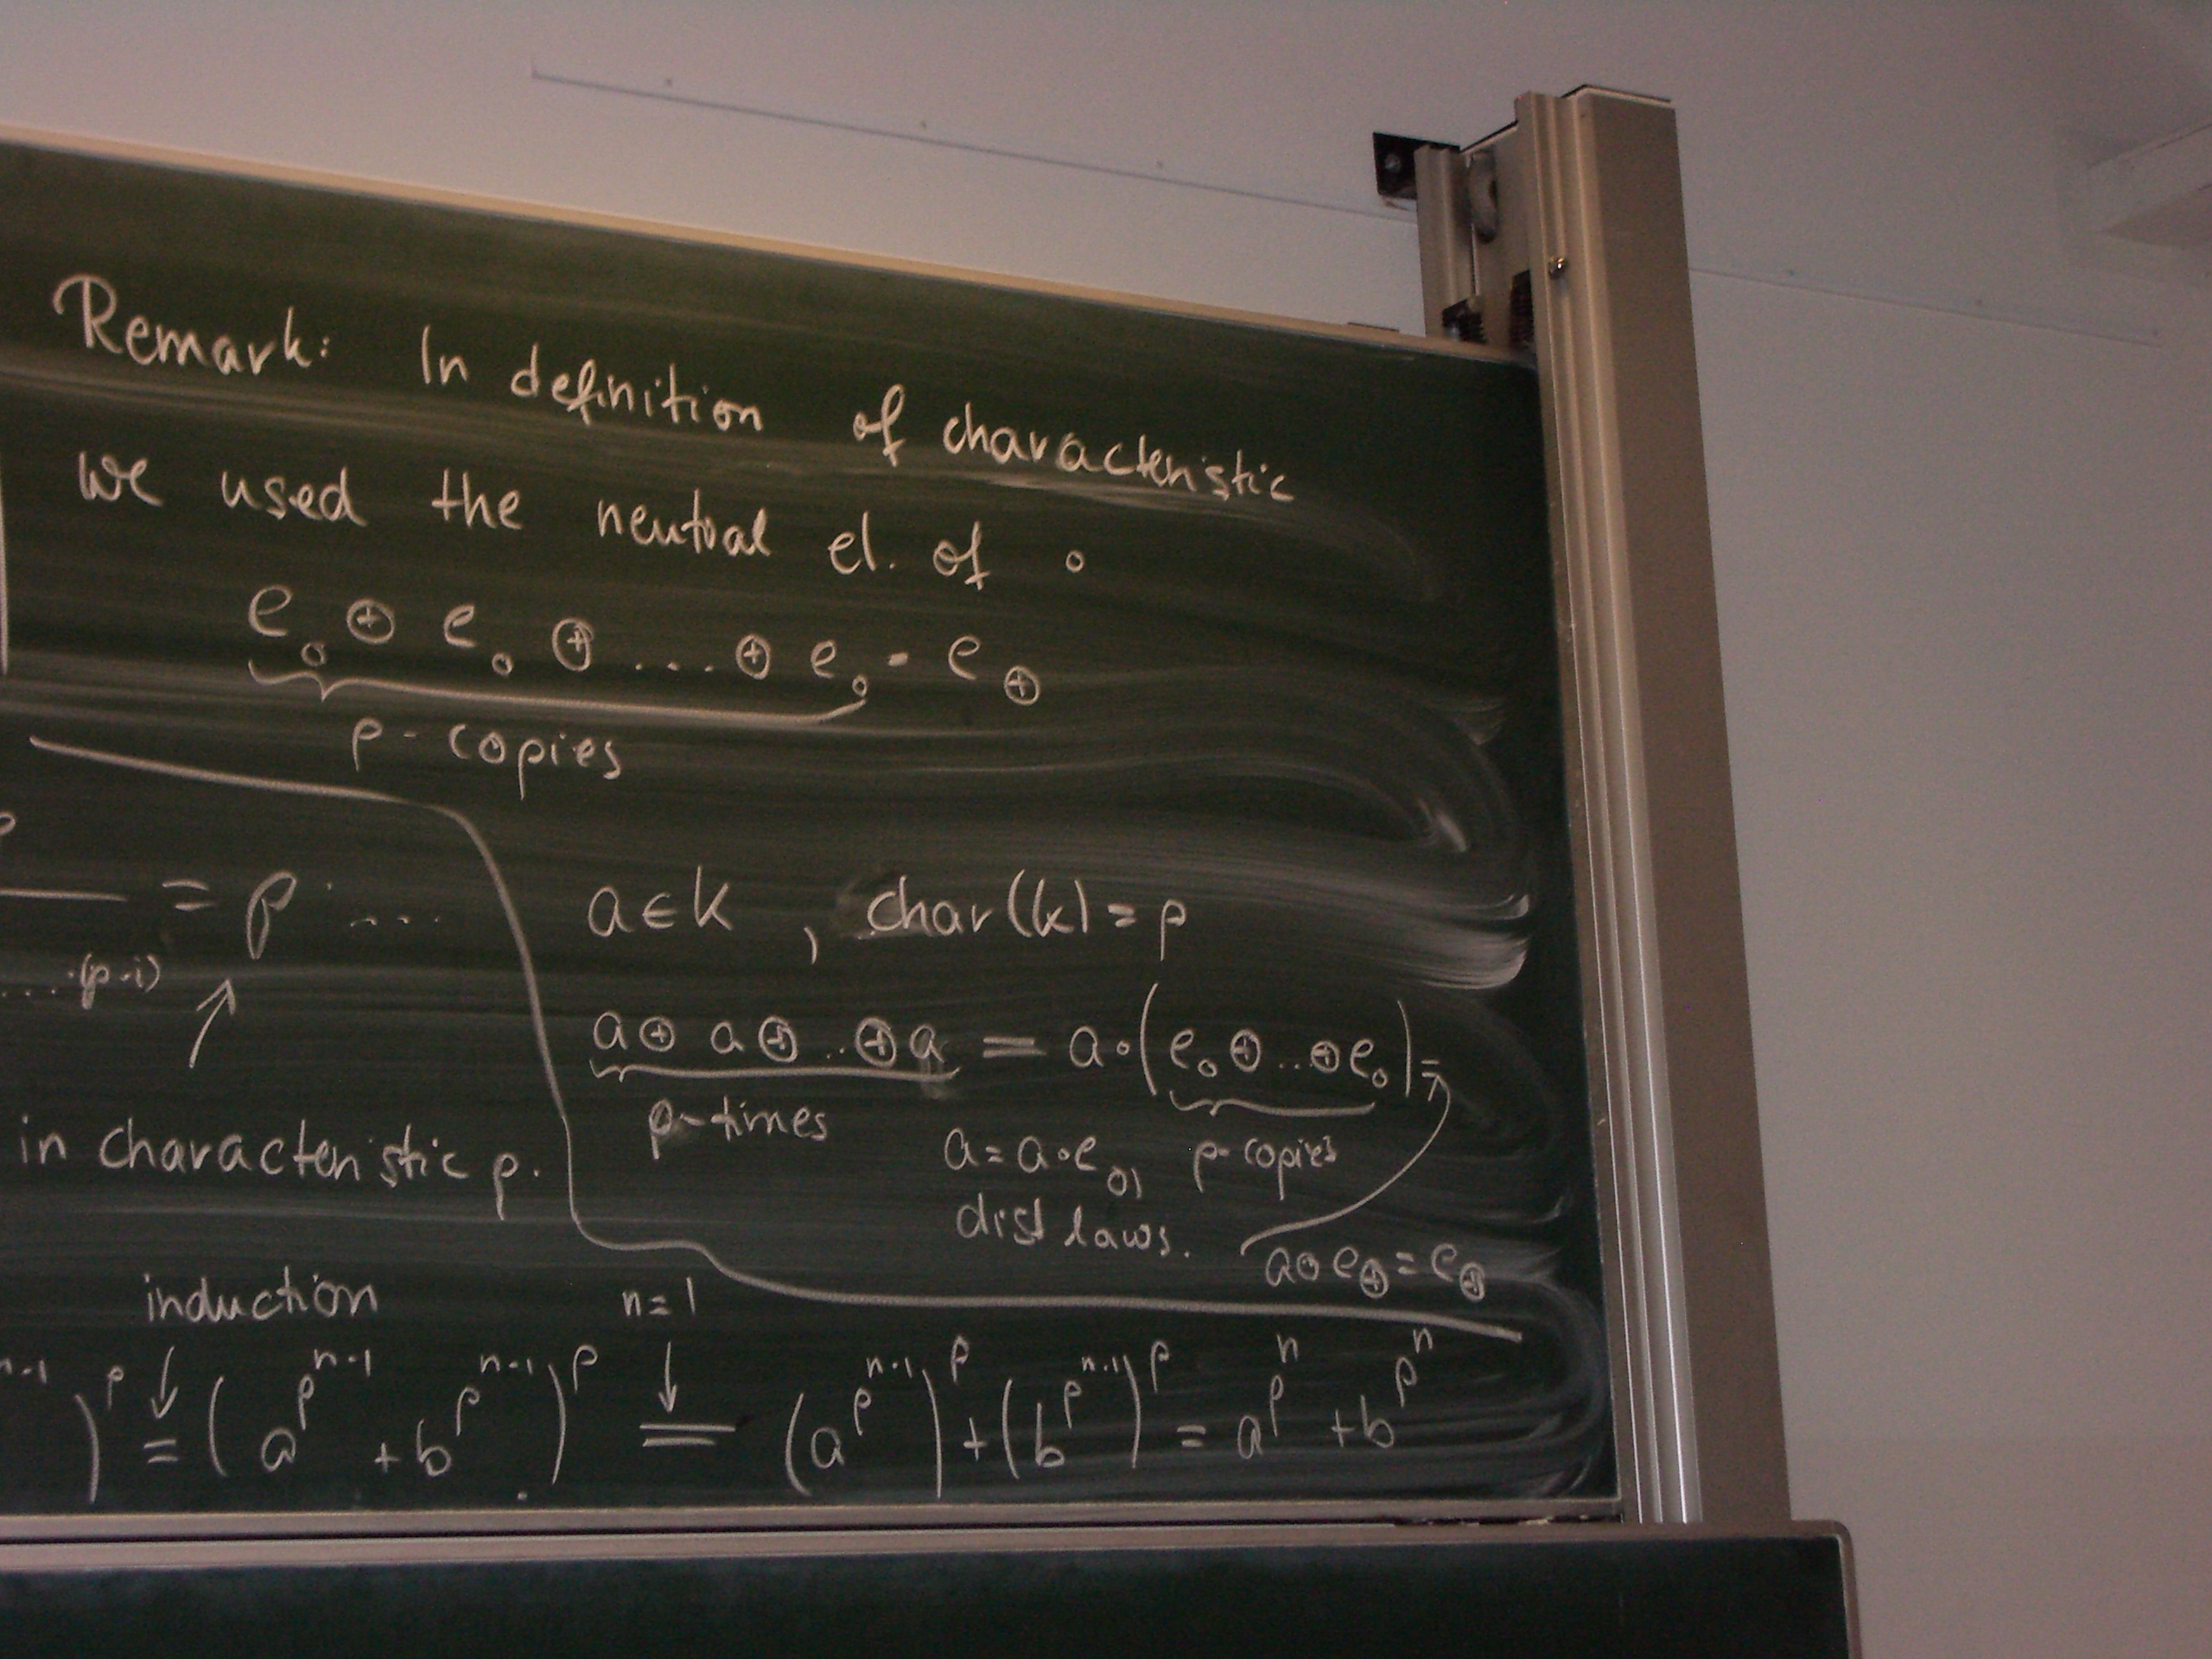 Remark: In definition of characteristic
we used the neutral el. of ∘
e∘ ⊕ e∘ ⊕ ... ⊕ e∘ = e⊕
p-copies
= p · ...
... ·(p-i)
in characteristic p.
a ∈ k , char(k) = p
a ⊕ a ⊕ .. ⊕ a = a∘(e∘ ⊕ .. ⊕ e∘) =
p-times
a = a∘e∘, p-copies
dist laws.
a∘e⊕ = e⊕
induction n=1
^{n-1})^p = (a^{p^{n-1}} + b^{p^{n-1}})^p = (a^{p^{n-1}})^p + (b^{p^{n-1}})^p = a^{p^n} + b^{p^n}